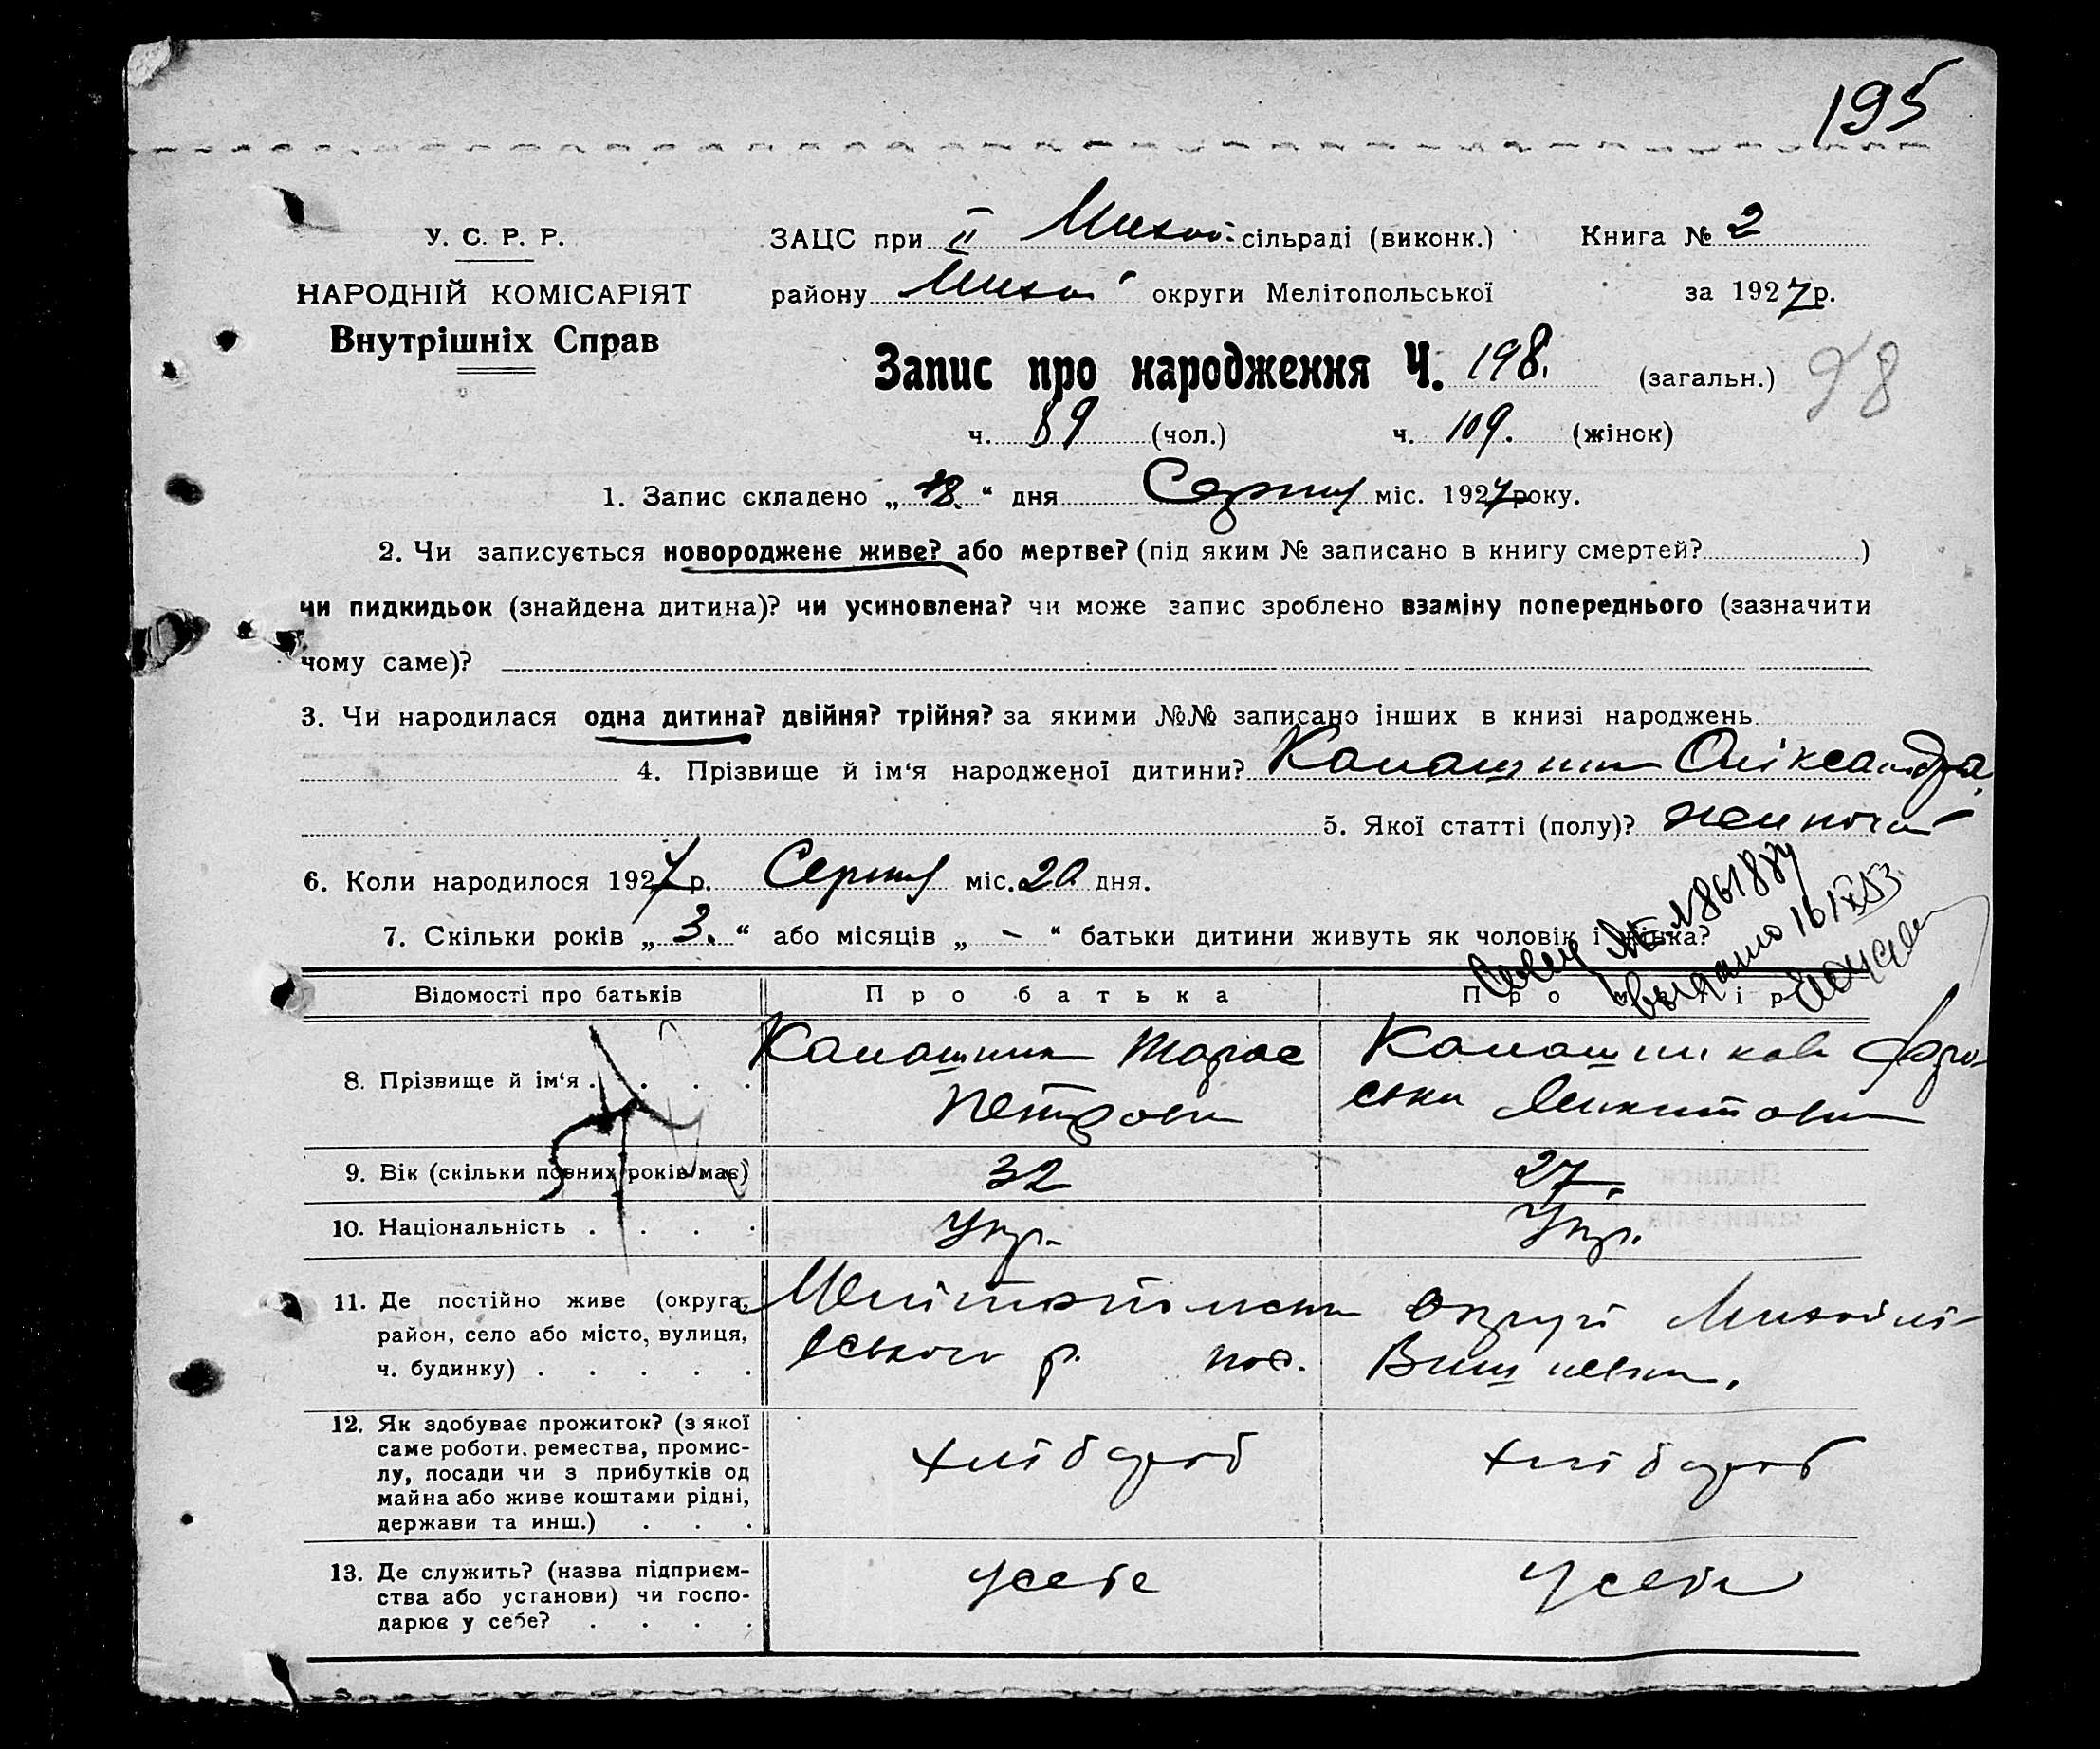 195
У. С. Р. Р.
НАРОДНІЙ КОМІСАРІЯТ
Внутрішніх Справ
ЗАЦС при II Михай- сільраді (виконк.) Книга № 2
району Михай округи Мелітопольської за 1927 р.
Запис про народження Ч. 198. (загальн.)
98
ч. 89 (чол.) ч. 109. (жінок)
1. Запис складено „ “ дня Серпня міс. 1927 року.
2. Чи записується новороджене живе? або мертве? (під яким № записано в книгу смертей? )
чи пидкидьок (знайдена дитина)? чи усиновлена? чи може запис зроблено взаміну попереднього (зазначити
чому саме)?
3. Чи народилася одна дитина? двійня? трійня? за якими №№ записано інших в книзі народжень
4. Прізвище й ім‘я народженої дитини? Калашник Оліксандра
5. Якої статті (полу)? жиноча
6. Коли народилося 1927 р. Серпня міс. 20 дня.
7. Скільки років „ 3. “ або місяців „ - “ батьки дитини живуть як чоловік і жінка?
выдано 16/IX 53
Відомості про батьків Про батька Про матір
8. Прізвище й ім‘я . . . . Калашник Тарас Калашникова Фро-
Петрови ськи Микитовни
9. Вік (скільки повних років має) 32 27.
10. Національність . . . . Укр. Укр.
11. Де постійно живе (округа, Мелітопольськи округи Михайлі-
район, село або місто, вулиця, вського р. пос. Вишневки.
ч. будинку) . . . . .
12. Як здобуває прожиток? (з якої
саме роботи, ремества, промис- хлібороб хлібороб
лу, посади чи з прибутків од
майна або живе коштами рідні,
держави та инш.) . . .
13. Де служить? (назва підприєм- у себе у себе
ства або установи) чи госпо-
дарює у себе? . . . .